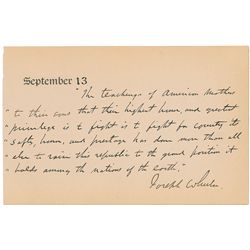 September 13
"The teachings of American Mothers
" to their sons that their highest honor, and greatest
" privilege is to fight is to fight for country its
" safety, honor, and prestige has done more than all
" else to raise this republic to the grand position it
" holds among the nations of the earth."
Joseph Wheeler